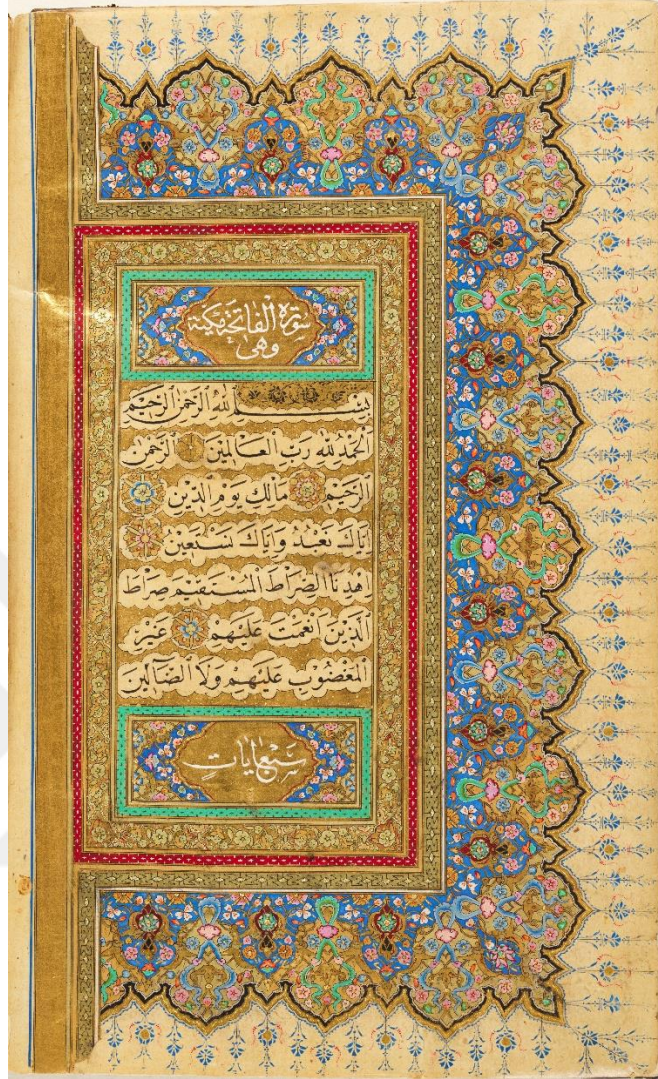 سورة الفاتحة مكية
وهي
بِسْمِ اللهِ الرَّحْمٰنِ الرَّحِيْمِ
اَلْحَمْدُ لِلّٰهِ رَبِّ الْعَالَمِيْنَ الرَّحْمٰنِ
الرَّحِيْمِ مَالِكِ يَوْمِ الدِّيْنِ
اِيَّاكَ نَعْبُدُ وَاِيَّاكَ نَسْتَعِيْنُ
اِهْدِنَا الصِّرَاطَ الْمُسْتَقِيْمَ صِرَاطَ
الَّذِيْنَ اَنْعَمْتَ عَلَيْهِمْ غَيْرِ
الْمَغْضُوْبِ عَلَيْهِمْ وَلَا الضَّآلِّيْنَ
سَبْعُ اٰيَاتٍ